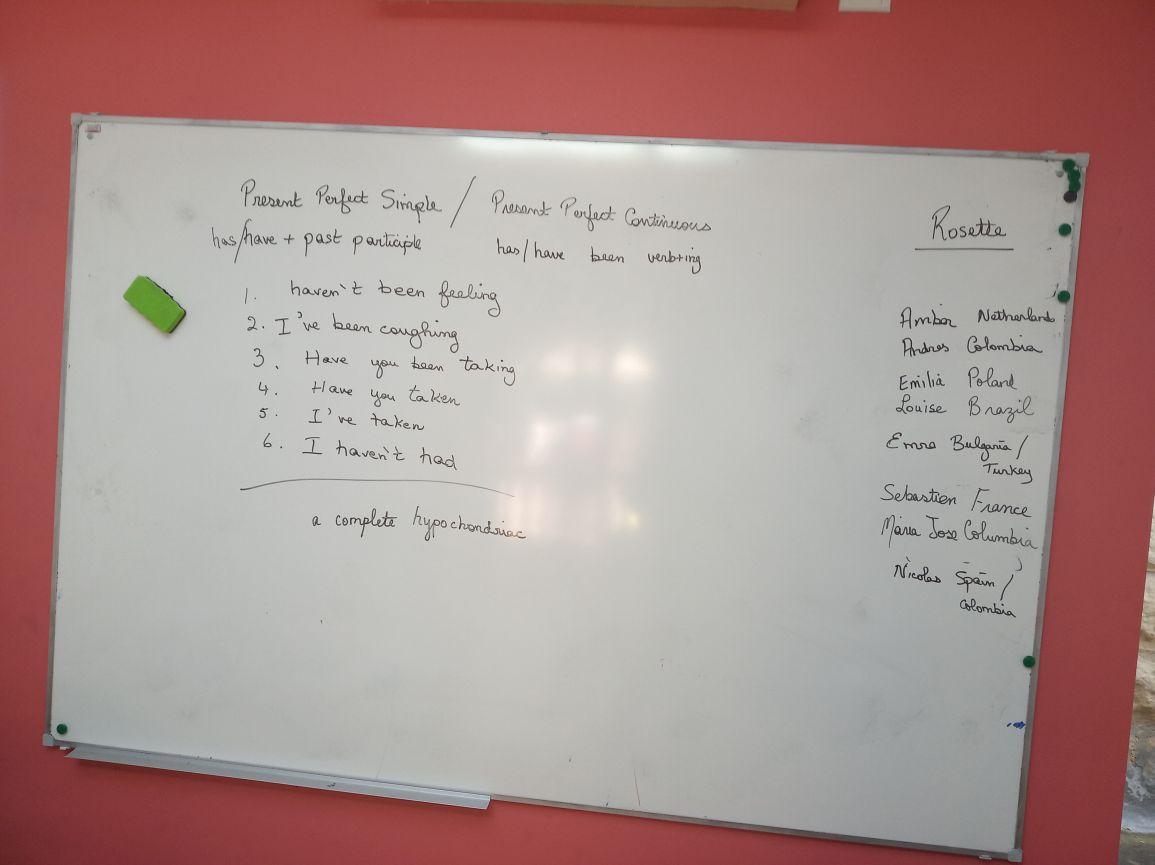 Present Perfect Simple / Present Perfect Continuous
has/have + past participle has/have been verb+ing
1. haven't been feeling
2. I've been coughing
3. Have you been taking
4. Have you taken
5. I've taken
6. I haven't had
a complete hypochondriac
Rosetta
Amber Netherlands
Andres Colombia
Emilia Poland
Louise Brazil
Emre Bulgaria /
Turkey
Sebastien France
Maria Jose Columbia
Nicolas Spain /
Colombia